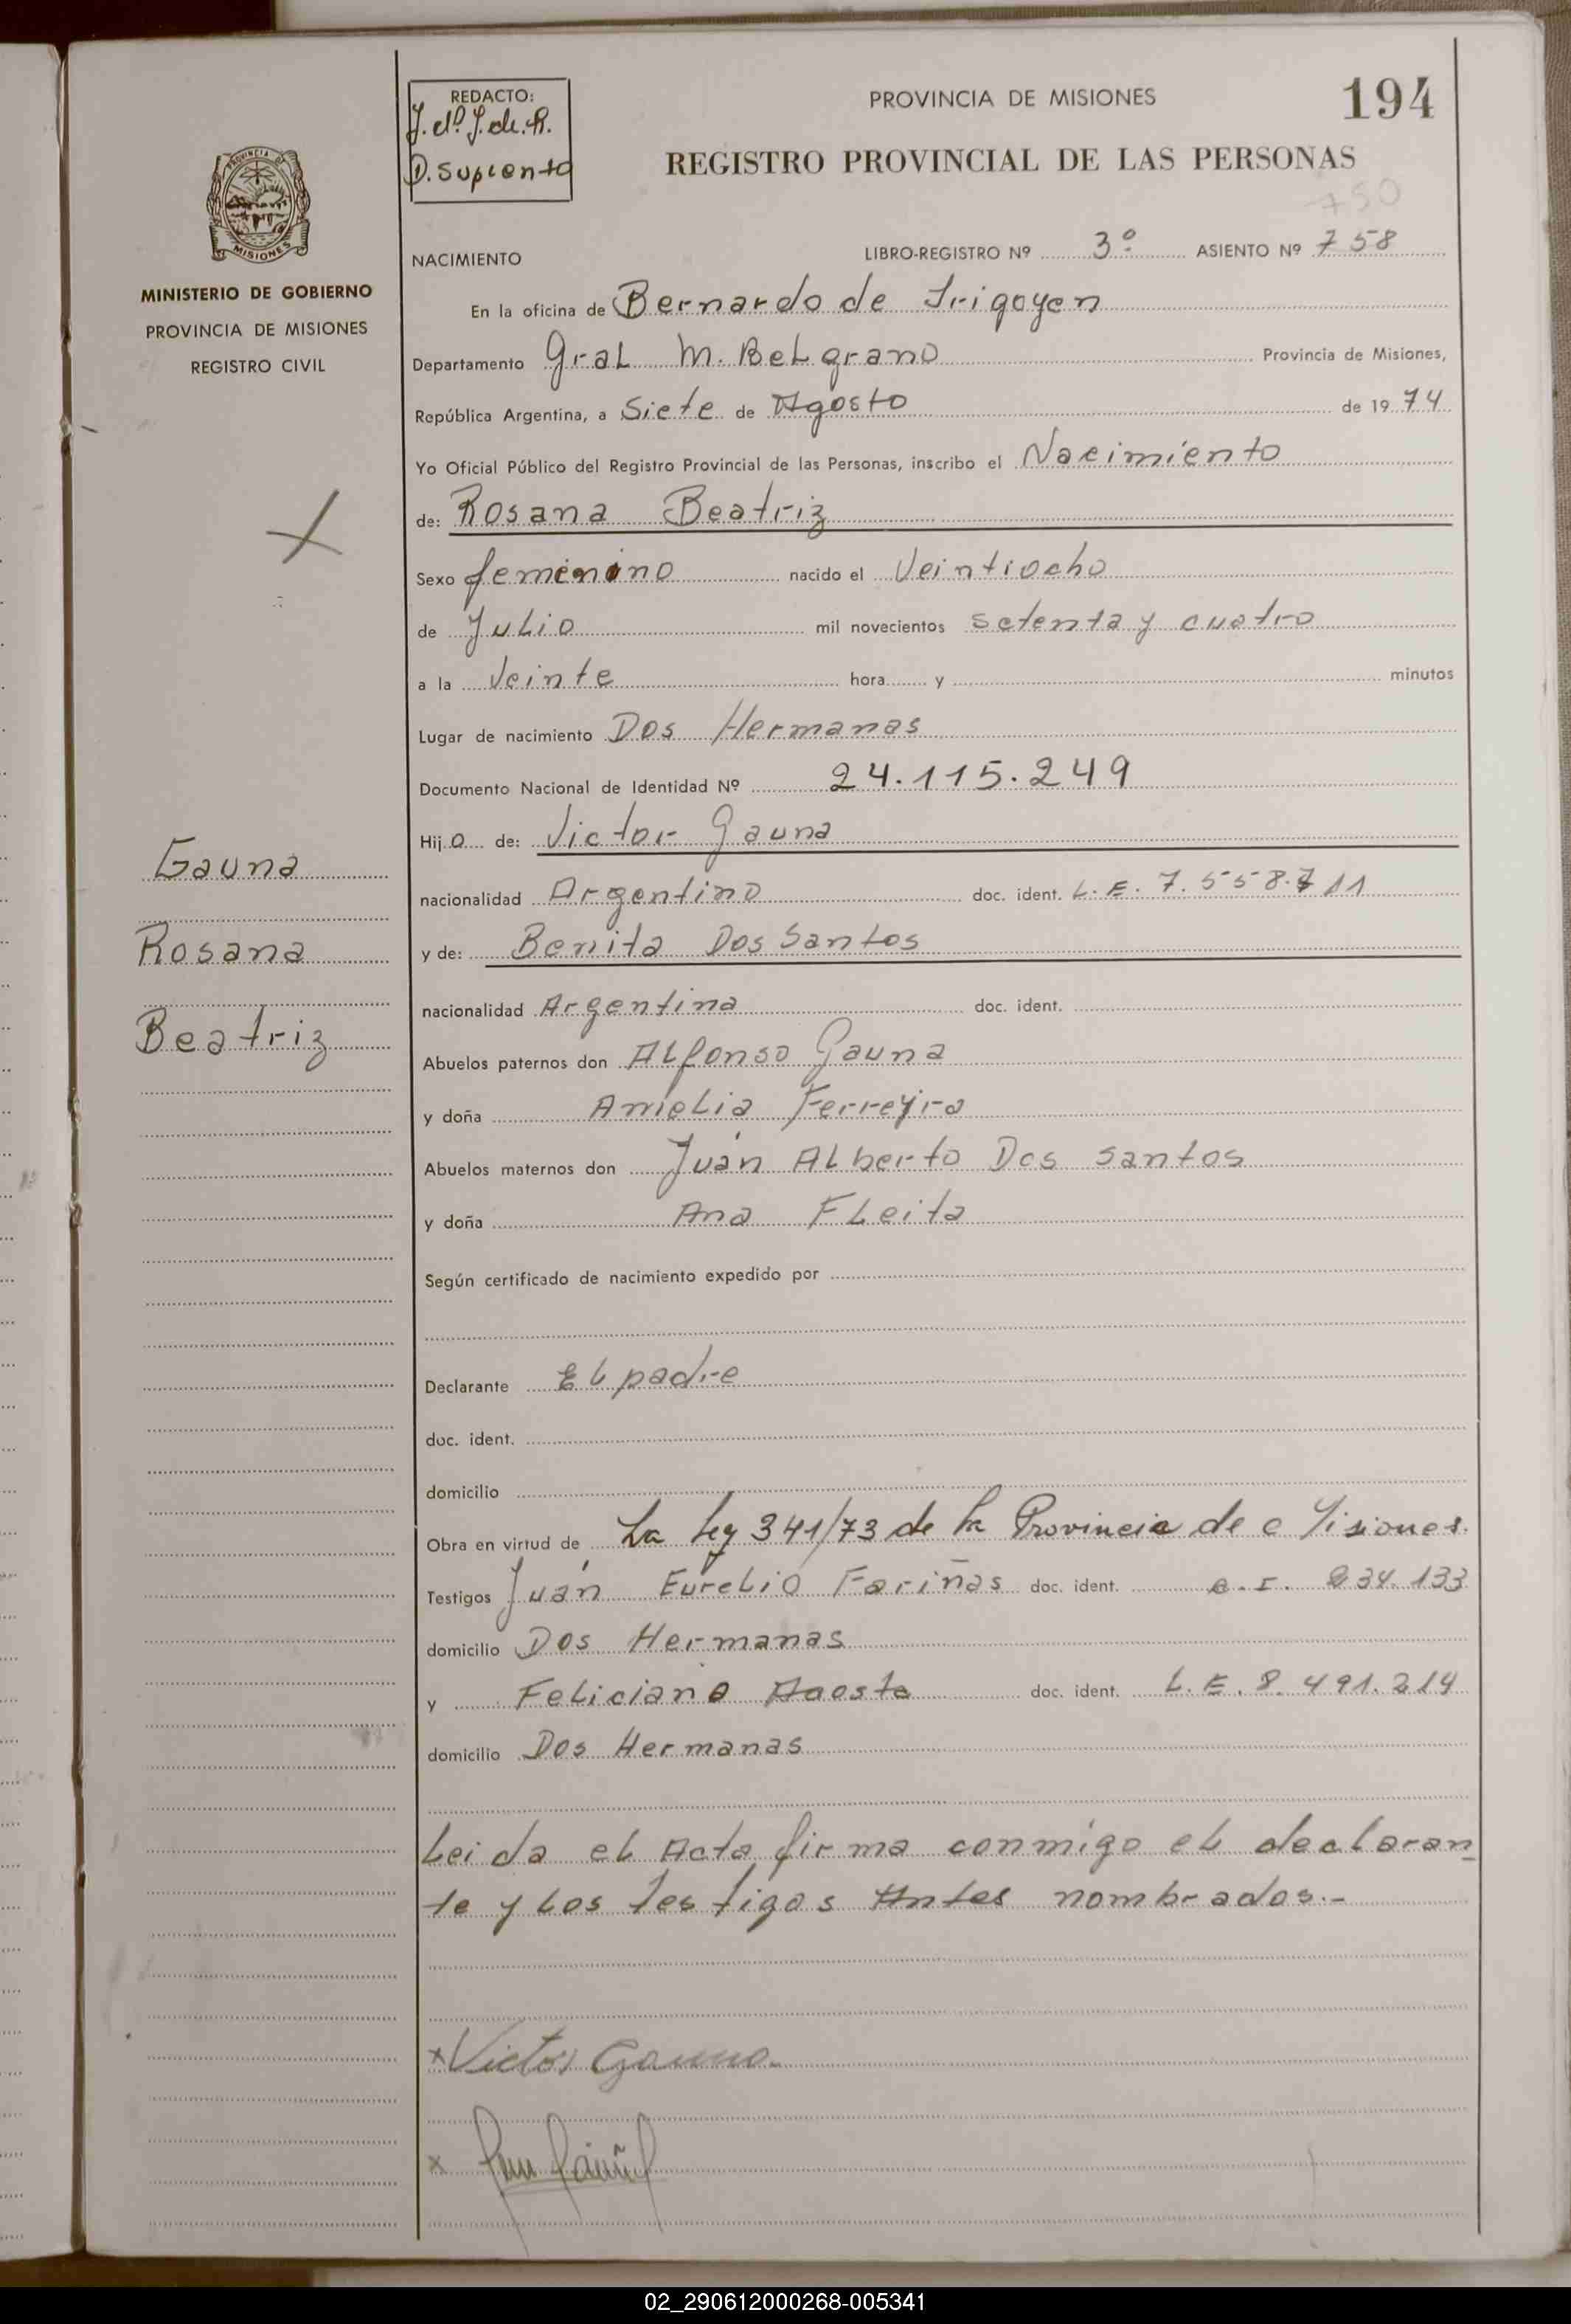 194
REDACTO:
J. d. J. de. R.
PROVINCIA DE MISIONES
REGISTRO PROVINCIAL DE LAS PERSONAS
750
NACIMIENTO LIBRO-REGISTRO Nº 3º ASIENTO Nº 758
En la oficina de Bernardo de Irigoyen
Departamento Gral M. Belgrano Provincia de Misiones,
República Argentina, a Siete de Agosto de 1974
Yo Oficial Público del Registro Provincial de las Personas, inscribo el Nacimiento
de: Rosana Beatriz
Sexo femenino nacido el Veintiocho
de Julio mil novecientos setenta y cuatro
a la Veinte hora y minutos
Lugar de nacimiento Dos Hermanas
Documento Nacional de Identidad Nº 24.115.249
Hijo de: Victor Gauna
nacionalidad Argentino doc. ident. L.E. 7.558.711
y de: Benita Dos Santos
nacionalidad Argentina doc. ident.
Abuelos paternos don Alfonso Gauna
y doña Amelia Ferreyra
Abuelos maternos don Juan Alberto Dos santos
y doña Ana Fleita
Según certificado de nacimiento expedido por
Declarante El padre
doc. ident.
domicilio
Obra en virtud de La Ley 341/73 de la Provincia de Misiones.
Testigos Juán Eurelio Fariñas doc. ident. C.I. 234.133
domicilio Dos Hermanas
y Feliciano doc. ident. L.E. 8.491.214
domicilio Dos Hermanas
Leida el Acta firma conmigo el declaran
te y los testigos Antes nombrados.-
x Victor Gauna
x
PROVINCIA DE
MISIONES
MINISTERIO DE GOBIERNO
PROVINCIA DE MISIONES
REGISTRO CIVIL
Gauna
Rosana
Beatriz
02_290612000268-005341